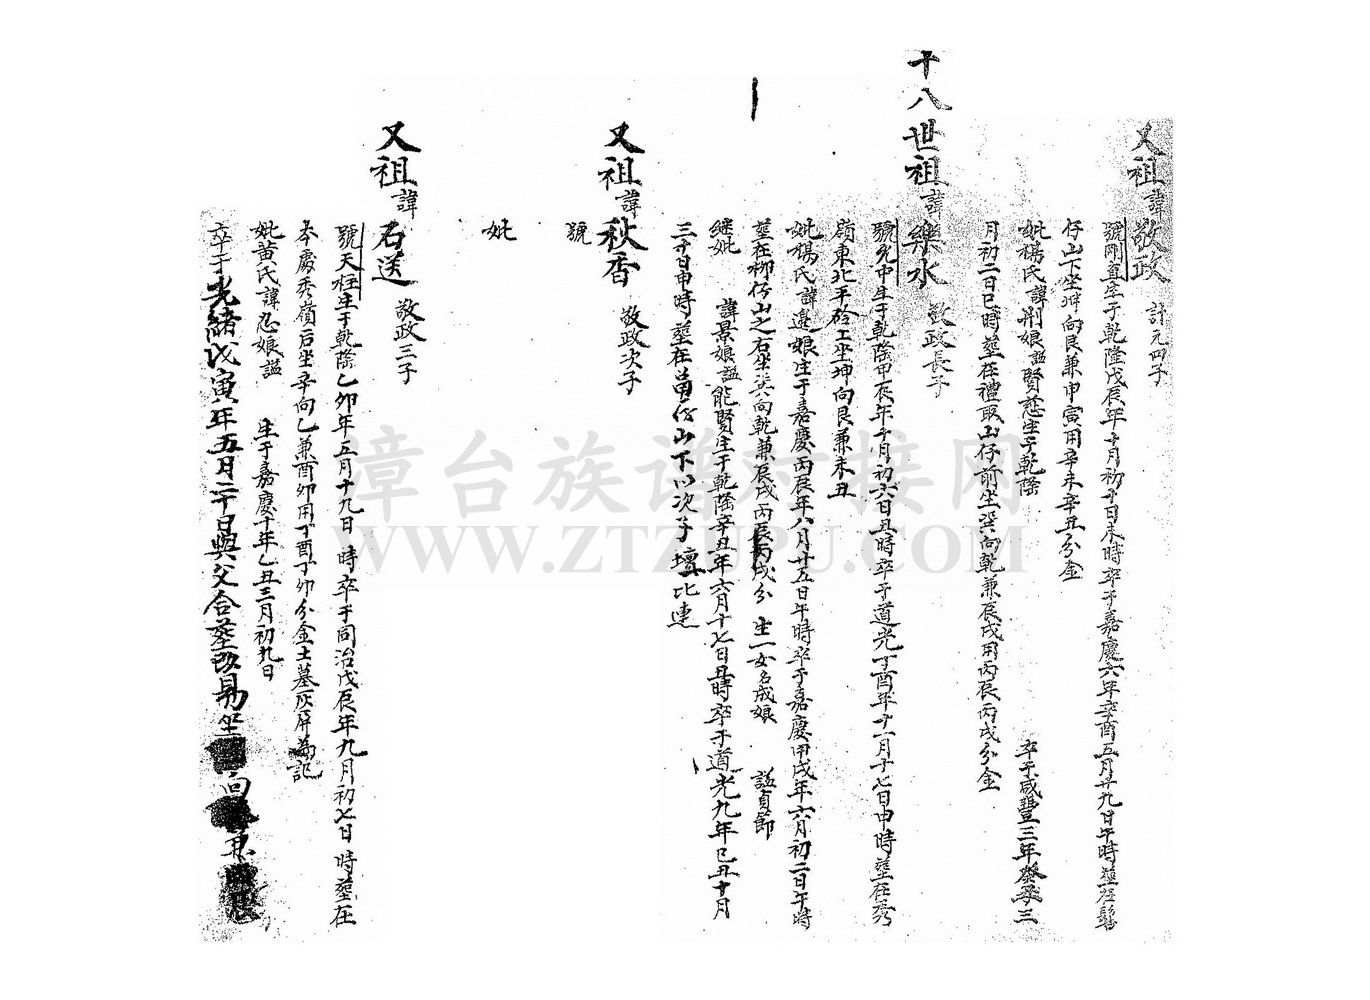 又祖諱敬政 計元四子
號剛直生于乾隆戊辰年十月初十日未時卒于嘉慶六年辛酉五月廿九日午時塟在鬍
仔山下坐坤向艮兼申寅用辛未辛丑分金
妣楊氏諱荊娘諡賢慈生于乾隆 卒于咸豐三年癸丑三
月初二日巳時塟在禮取山仔前坐巽向乾兼辰戌用丙辰丙戌分金
十八世祖諱樂水 敬政長子
號允中生于乾隆甲辰年十月初六日丑時卒于道光丁酉年十一月十七日申時塟在秀
嶺東北平砱工坐坤向艮兼未丑
妣楊氏諱邊娘生于嘉慶丙辰年八月廿五日午時卒于嘉慶甲戌年六月初二日午時
塟在柳仔山之右坐巽向乾兼辰戌丙辰丙戌分 生一女名成娘 諡貞節
継妣 諱景娘諡能賢生于乾隆辛丑年六月十七日丑時卒于道光九年己丑十月
三十日申時塟在 仔山下以次子壇比連
又祖諱秋香 敬政次子
號
妣
又祖諱石送 敬政三子
號天柱生于乾隆乙卯年五月十九日 時卒于同治戊辰年九月初七日 時塟在
本處秀嶺后坐辛向乙兼酉卯用丁酉丁卯分金土墓灰屏為記
妣黄氏諱忍娘諡 生于嘉慶十年乙丑三月初九日
卒于光緒戊寅年五月二十日與父合塟改易坐 向 兼
漳台族谱对接网
WWW.ZTZUPU.COM